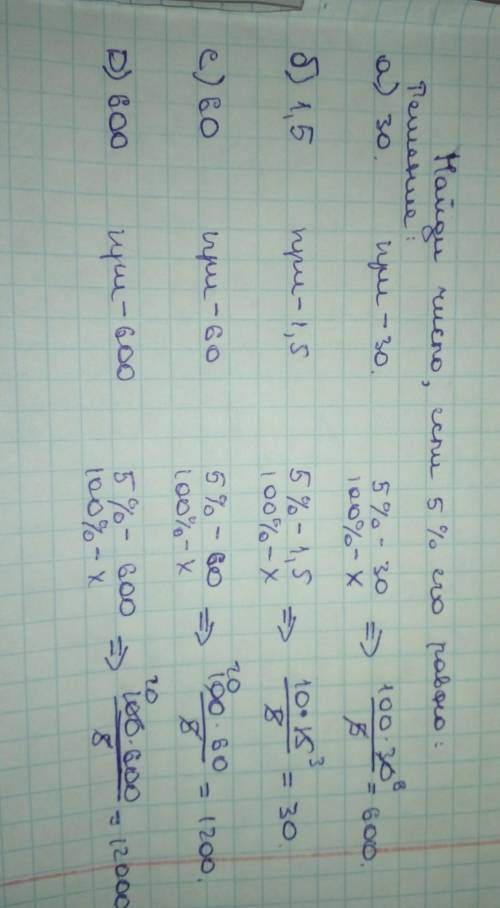 Найди число, если 5% его равно:
Решение:
а) 30. при – 30. 5% – 30 100% – x ⇒ 100·30⁶/5 = 600.
б) 1,5 при – 1,5 5% – 1,5 100% – x ⇒ 10·15³/5 = 30.
с) 60 при – 60 5% – 60 100% – x ⇒ ²⁰100·60/5 = 1200.
D) 600 при – 600 5% – 600 100% – x ⇒ ²⁰100·600/5 = 12000